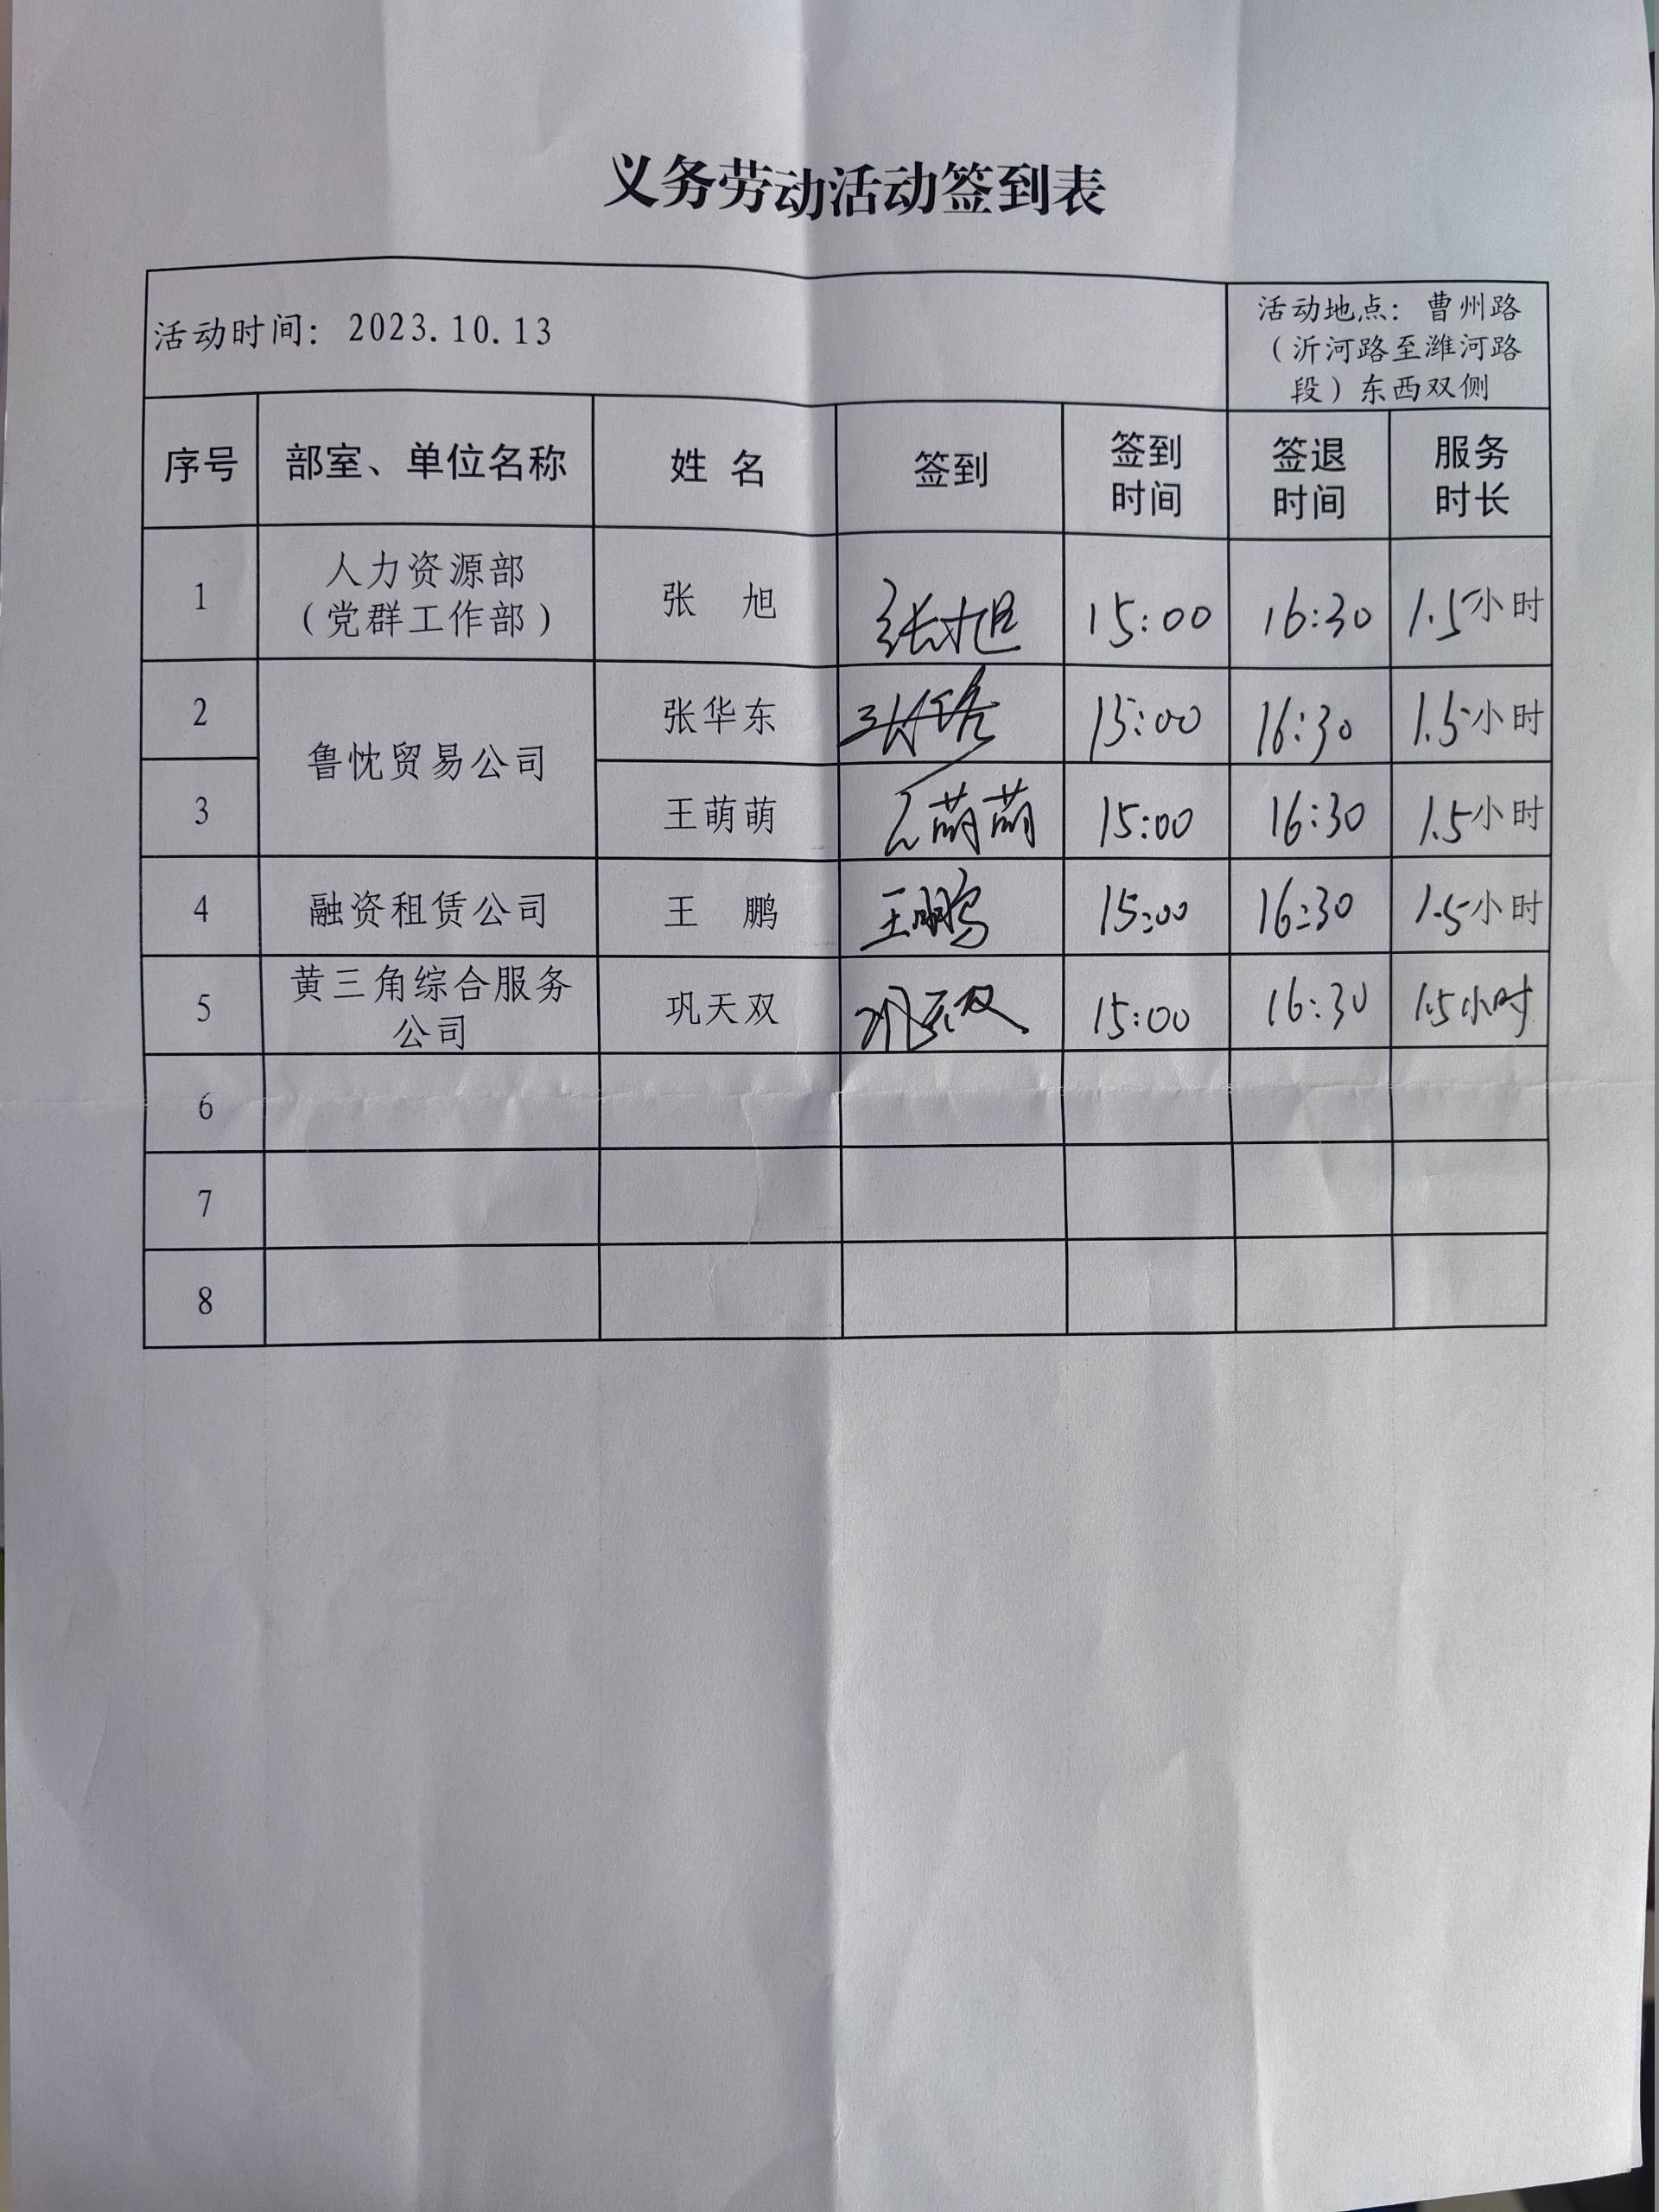 义务劳动活动签到表
活动时间：2023.10.13
活动地点：曹州路
（沂河路至潍河路
段）东西双侧
序号 部室、单位名称 姓 名 签到 签到时间 签退时间 服务时长
1 人力资源部（党群工作部） 张 旭 张旭 15:00 16:30 1.5小时
2 鲁忱贸易公司 张华东 15:00 16:30 1.5小时
3 王萌萌 王萌萌 15:00 16:30 1.5小时
4 融资租赁公司 王 鹏 王鹏 15:00 16:30 1.5小时
5 黄三角综合服务公司 巩天双 巩天双 15:00 16:30 1.5小时
6
7
8